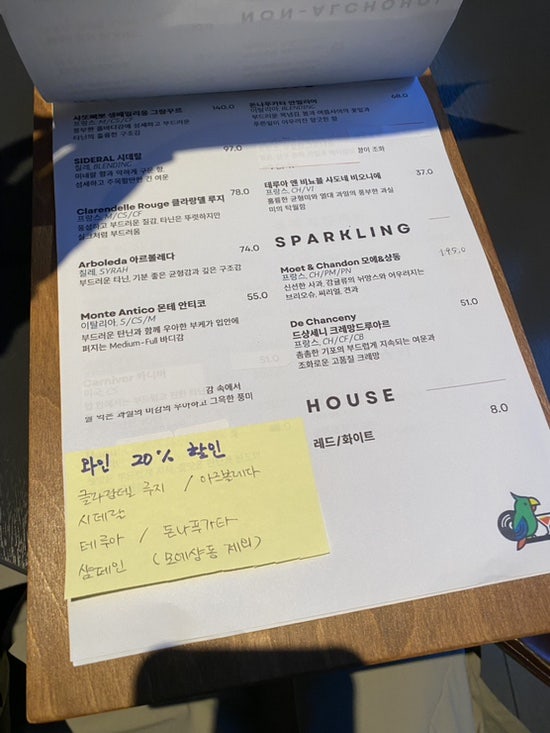 NON-ALCHOHOL
샤또빼봇 생떼밀리옹 그랑크루 140.0
프랑스, M/CS/CF
풍부한 롬바디감에 섬세하고 부드러운
타닌의 훌륭한 구조감
SIDERAL 시데랄 97.0
칠레, BLENDING
미네랄 향과 막하게 구운 향,
섬세하고 주목할만한 긴 여운
Clarendelle Rouge 클라랑델 루지 78.0
프랑스, M/CS/CF
풍성하고 부드러운 질감, 타닌은 뚜렷하지만
실크처럼 부드러움
Arboleda 아르볼레다 74.0
칠레, SYRAH
부드러운 타닌, 기분 좋은 균형감과 깊은 구조감
Monte Antico 몬테 안티코 55.0
이탈리아, S/CS/M
부드러운 탄닌과 함께 우아한 부케가 입안에
퍼지는 Medium-Full 바디감
Carnivor 카니버 51.0
감 속에서
잘 익은 과실의 미감의 우아하고 그윽한 풍미
돈나푸가타 안띨리아 68.0
이탈리아, BLENDING
향이 조화
테루아 앤 비뇨블 샤도네 비오니에 37.0
프랑스, CH/VI
훌륭한 균형미와 열대 과일의 풍부한 과실
미의 탁월함
SPARKLING
Moet & Chandon 모에&샹동 195.0
프랑스, CH/PM/PN
신선한 사과, 감귤류의 뉘앙스와 어우러지는
브리오슈, 씨리얼, 견과
De Chanceny 51.0
드샹세니 크레망드루아르
프랑스, CH/CF/CB
촘촘한 기포의 부드럽게 지속되는 여운과
조화로운 고품질 크레망
HOUSE
레드/화이트 8.0
와인 20% 할인
클라랑델 루지 / 아르볼레다
시데랄
테루아 / 돈나푸가타
샴페인 (모에샹동 제외)